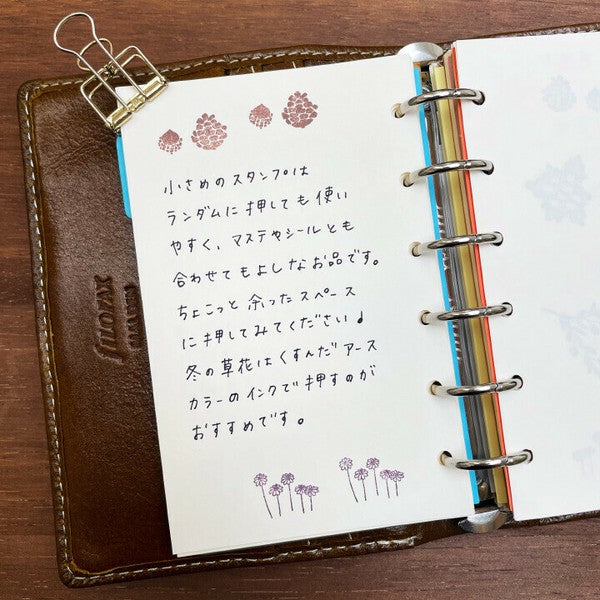 小さめのスタンプは
ランダムに押しても使い
やすく、マステやシールとも
合わせてもよしなお品です。
ちょこっと余ったスペース
に押してみてください♩
冬の草花はくすんだアース
カラーのインクで押すのが
おすすめです。
filofax